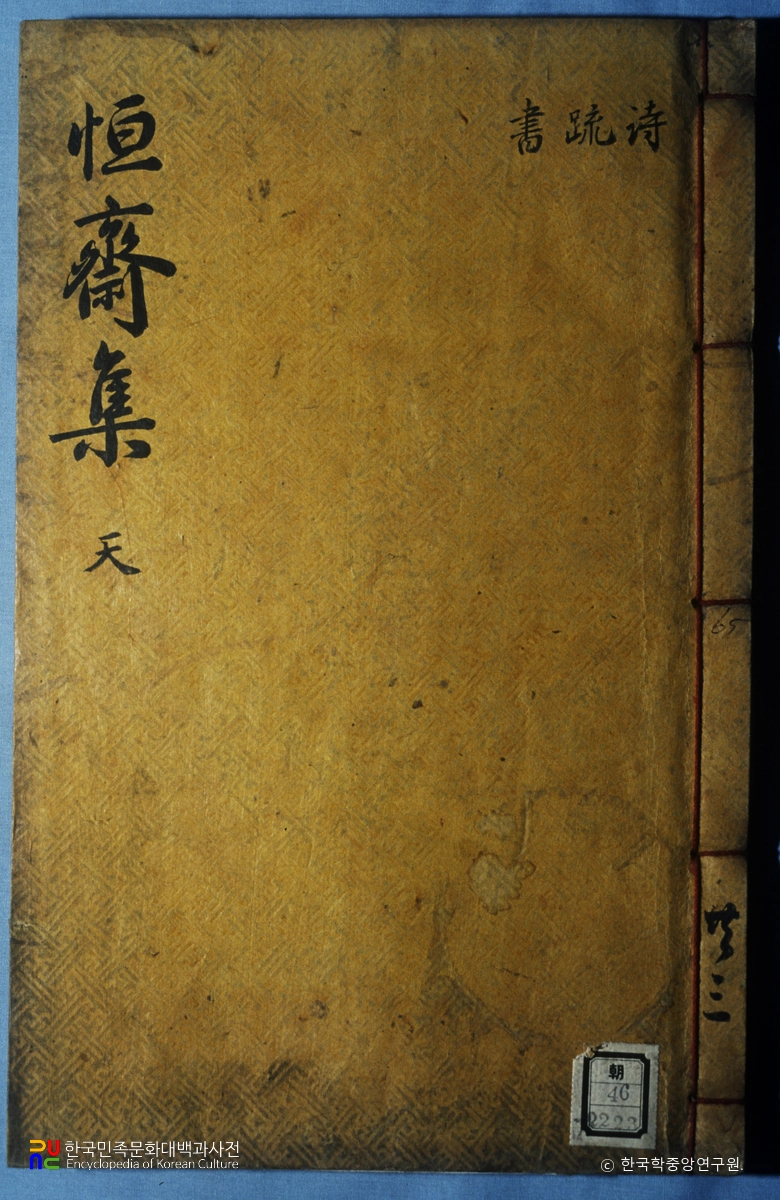 恒齋集 天
詩疏書
65
共三
朝
46
2223
한국민족문화대백과사전
Encyclopedia of Korean Culture
© 한국학중앙연구원